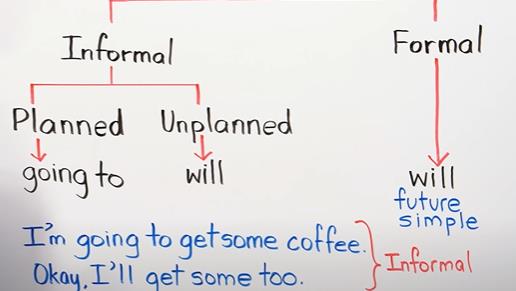 Informal
Formal
Planned
Unplanned
going to
will
will
future
simple
I'm going to get some coffee.
Okay, I'll get some too.
Informal